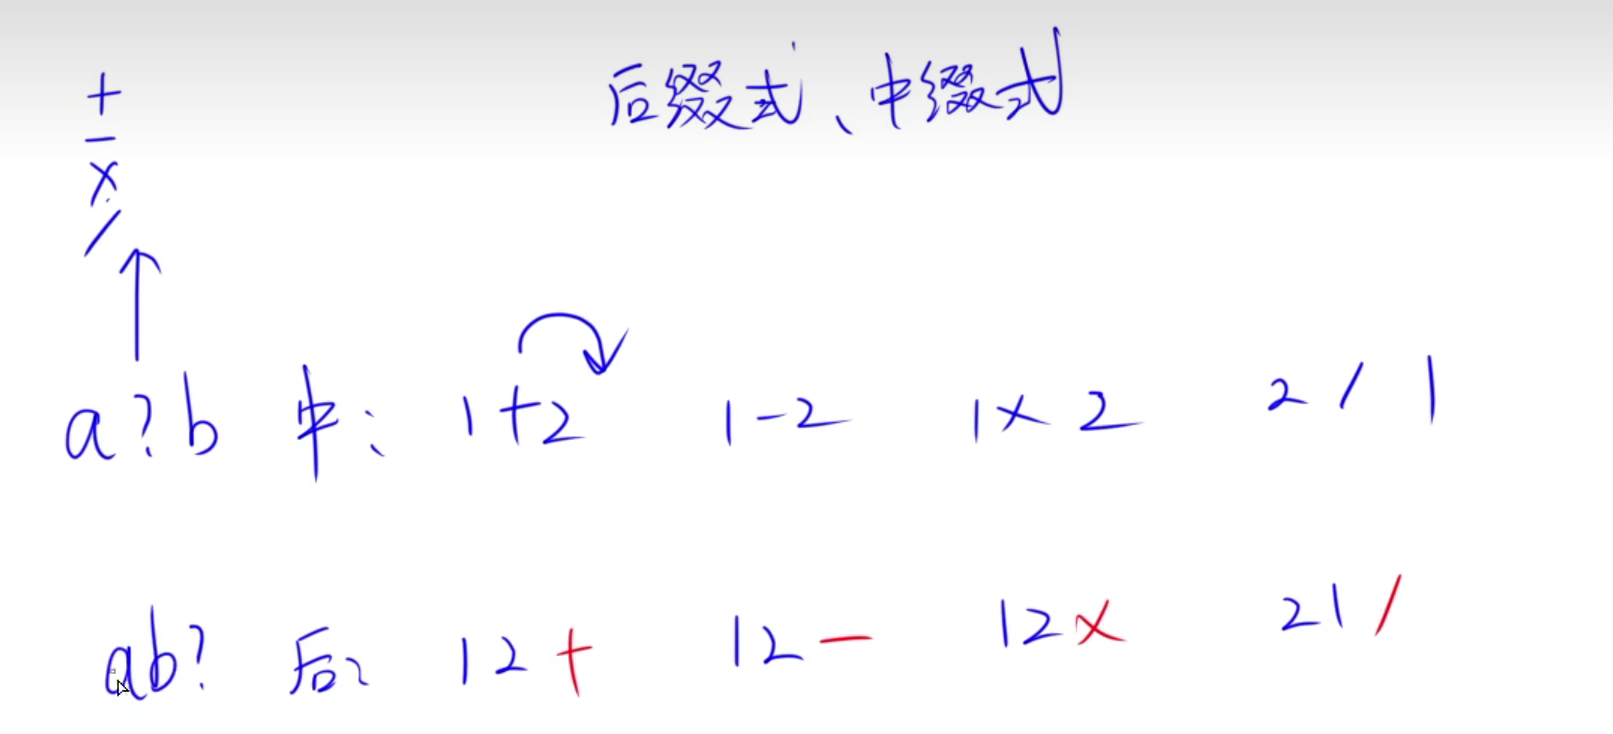 后缀式、中缀式
+
−
×
/
a?b 中: 1+2 1-2 1×2 2/1
ab? 后: 12+ 12- 12× 21/